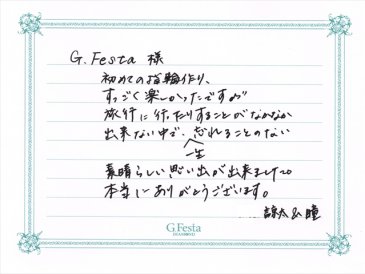 G.Festa 様
初めての指輪作り、
すっごく楽しかったです♡
旅行に行ったりすることがなかなか
出来ない中で、忘れることのない
一生
素晴らしい思い出が出来ました。
本当にありがとうございます。
諒太&瞳
G.Festa